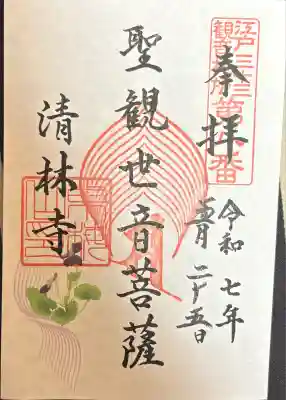 江戸三十三
観音札所
第八番
奉拝
令和七年
月二十五日
聖観世音菩薩
清林寺